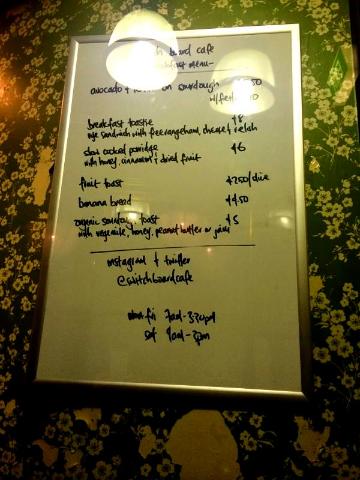 board cafe
menu-
avocado + on sourdough
w/feta
breakfast toastie $8
rye sandwich with free range ham, cheese + relish
slow cooked porridge $6
with honey, cinnamon + dried fruit
fruit toast $2.50/slice
banana bread $4.50
organic sourdough toast $5
with vegemite, honey, peanut butter or jam
instagram + twitter
@switchboardcafe
mon-fri 7am-3.30pm
sat 9am-2pm